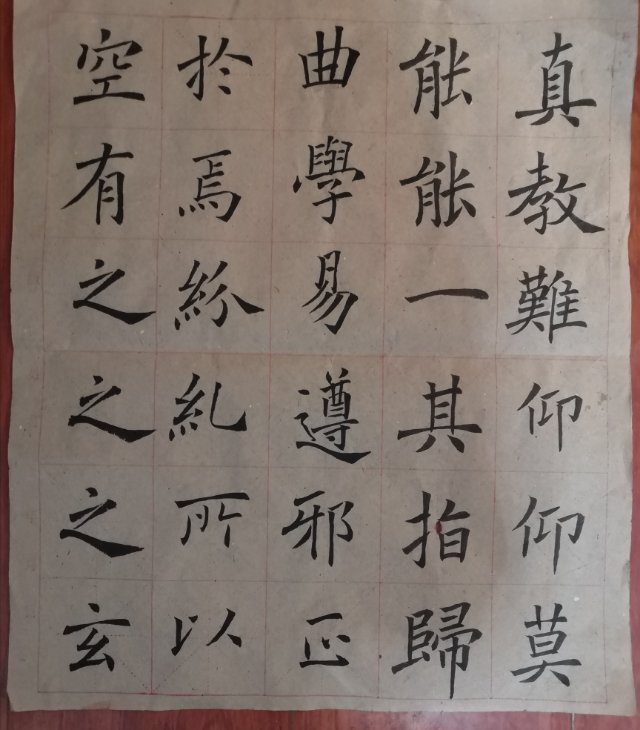 真教難仰仰莫
能能一其指歸
曲學易遵邪正
於焉紛糺所以
空有之之之玄